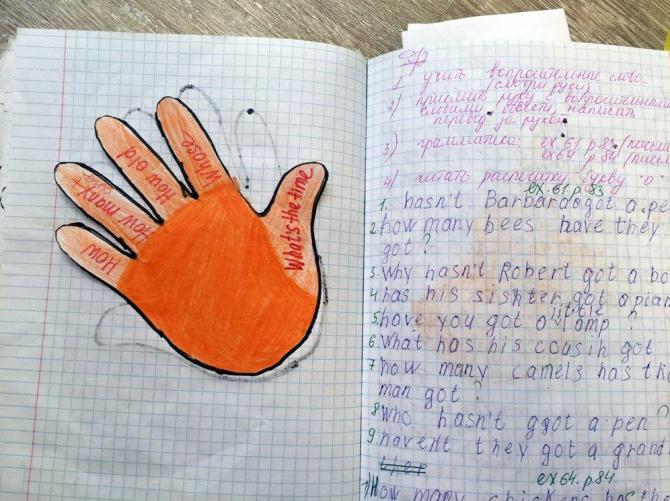 How
How many
How old
Whose
What's the time
1. учить вопросительные слова
(смотри руки)
2) приклеить руку с вопросительными
словами, обвести, написать
перевод за рукой.
3) грамматика: ex 61 p 83
ex 64 p 84
4) читать распечатку букву "o"
ex. 61. p. 83
1. hasn't Barbara got a pe
2. how many bees have they
got?
3. why hasn't Robert got a bo
4. has his sishter got a pian
little
5. have you got a lamp?
6. what has his cousin got
7 how many camels has the
man got?
8 who hasn't ggot a pen?
9. haven't they got a grand
ex 64. p. 84.
1) How many chickens has the